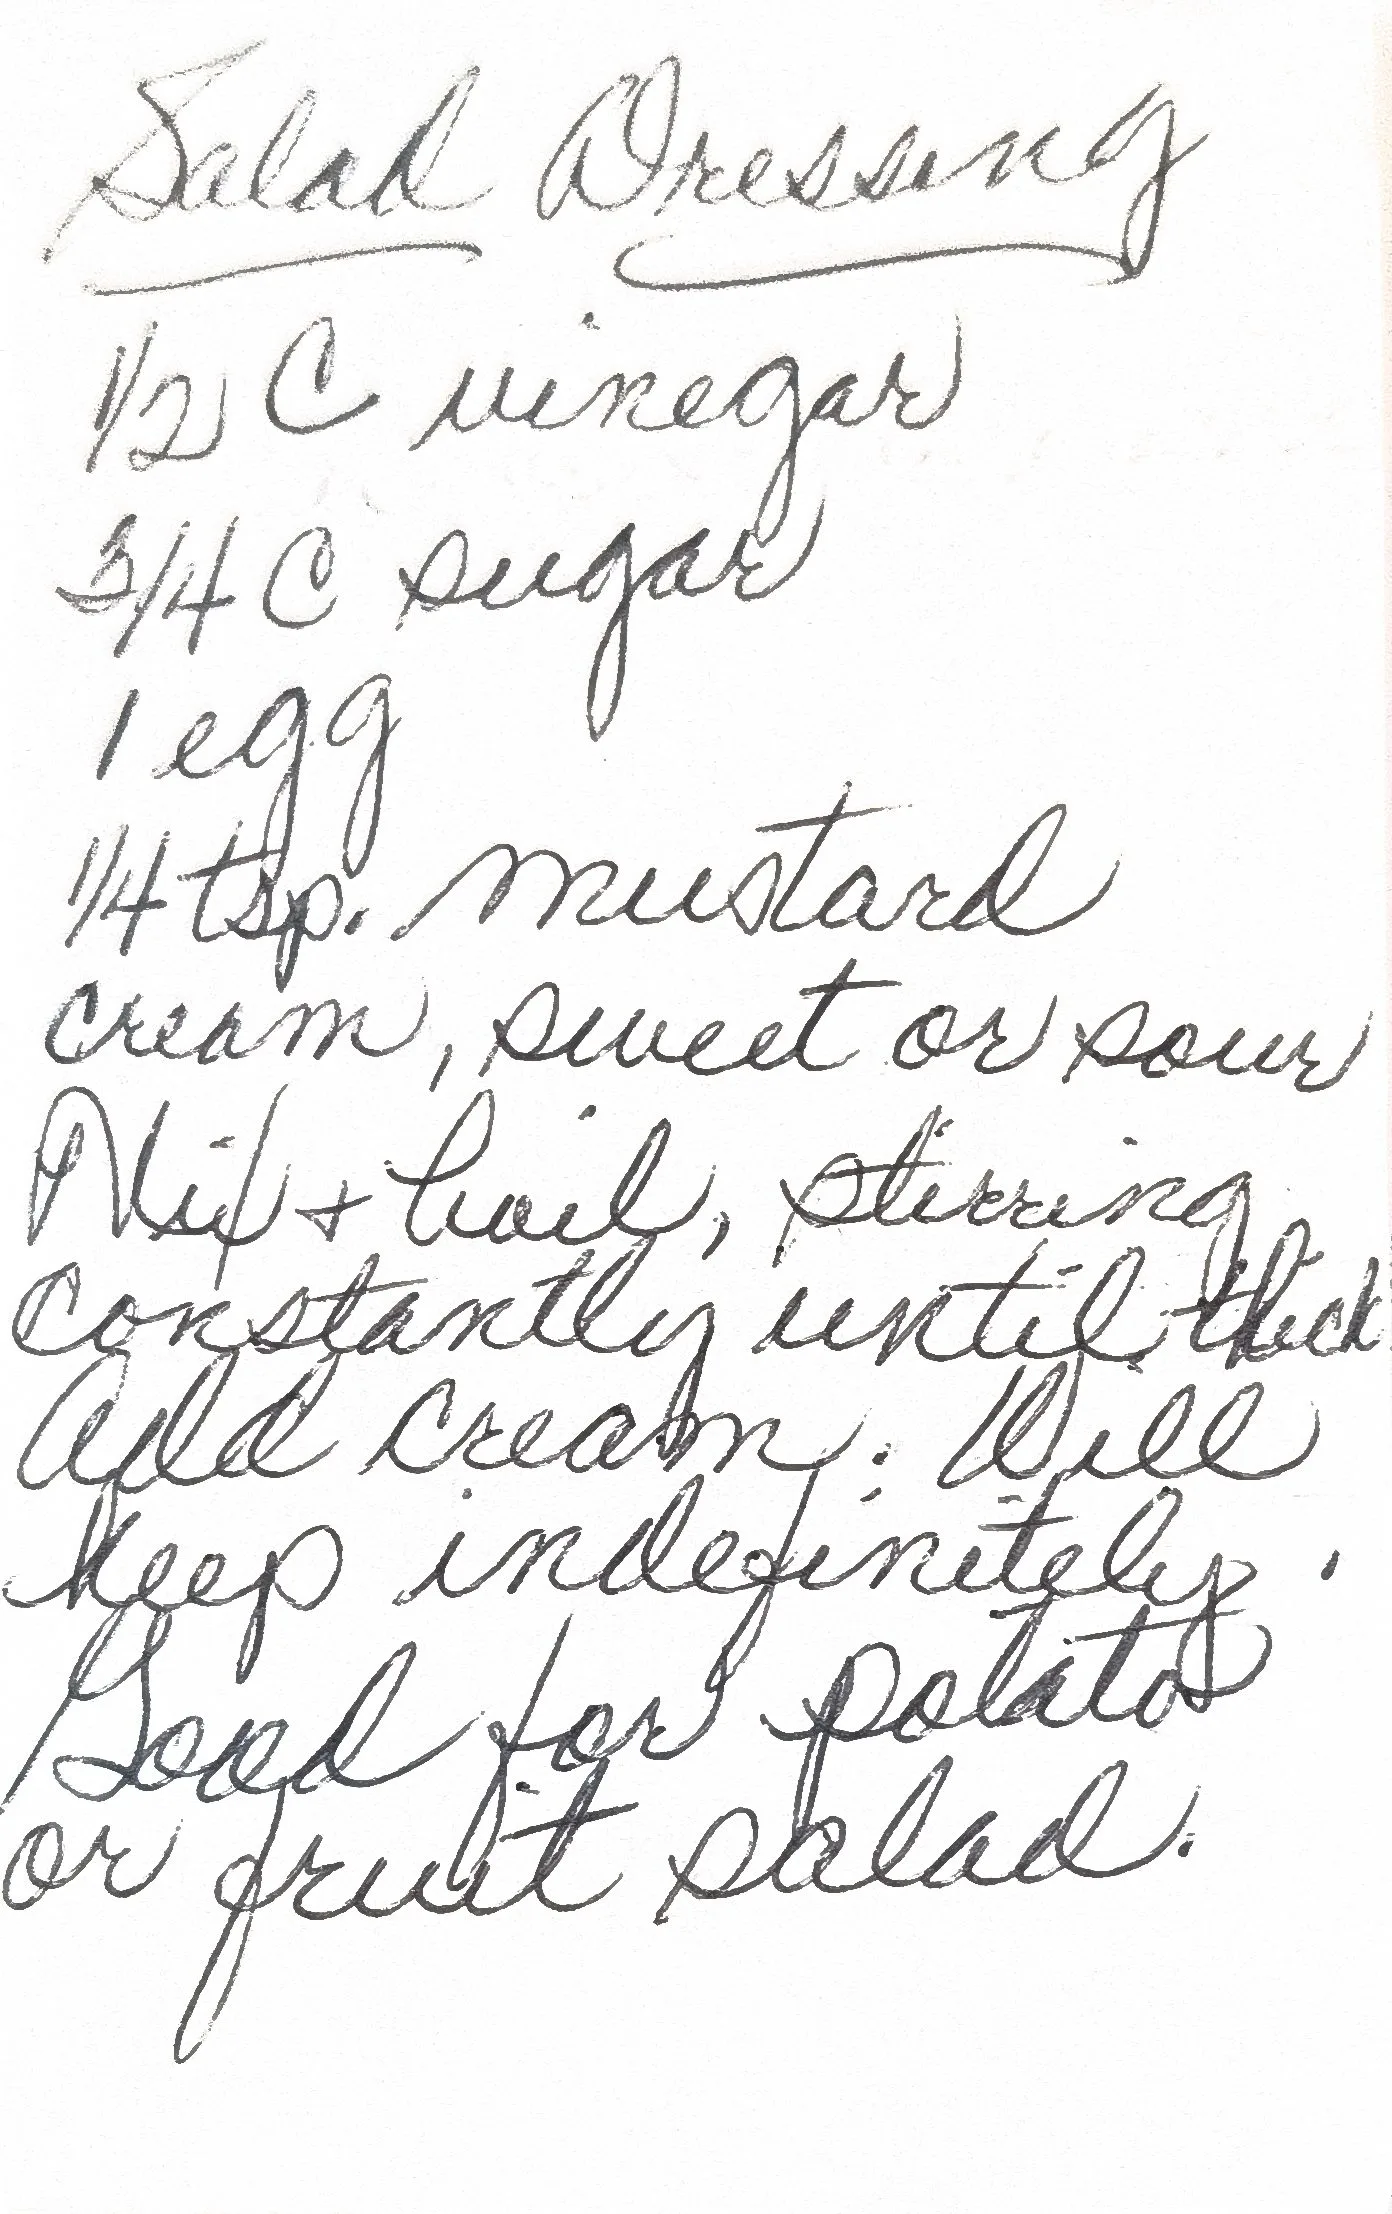 Salad Dressing
1/2 C vinegar
3/4 C sugar
1 egg
1/4 tsp. mustard
cream, sweet or sour
Mix + boil, stirring
constantly until thick
Add cream. Will
keep indefinitely.
Good for potato
or fruit salad.